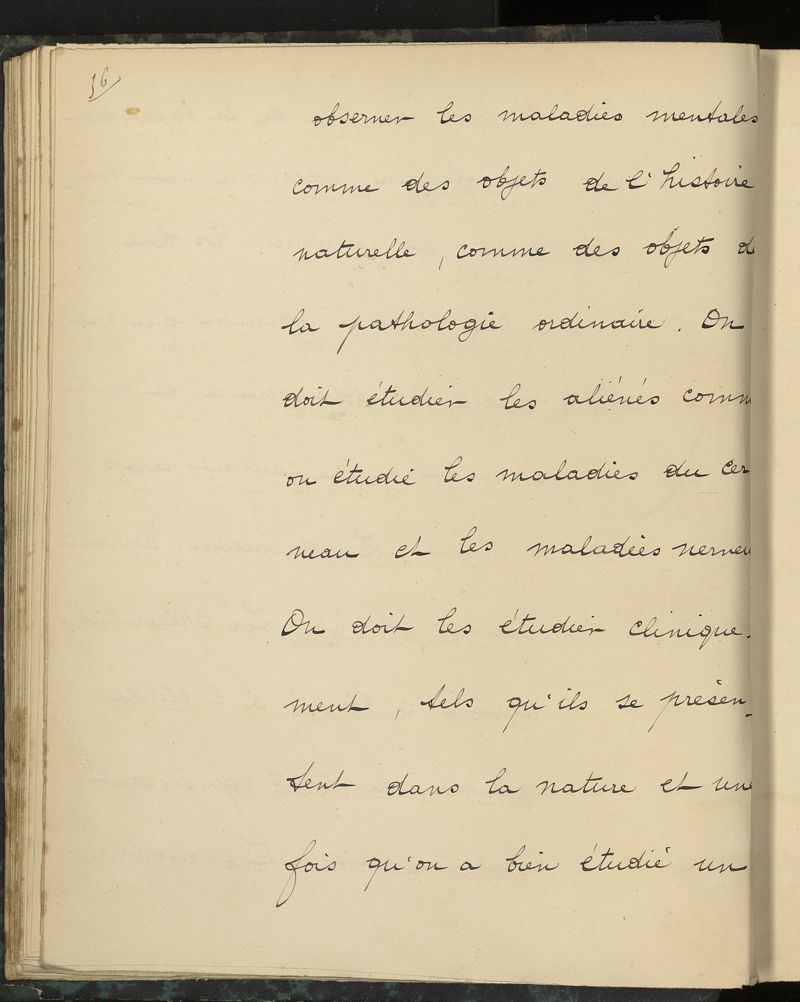 36
observer les maladies mentales
comme des objets de l'histoire
naturelle, comme des objets d
la pathologie ordinaire. On
doit étudier les aliénés comm
on étudie les maladies du cer
neau et les maladies nerveu
On doit les étudier clinique-
ment, tels qu'ils se présen-
tent dans la nature et une
fois qu'on a bien étudié un